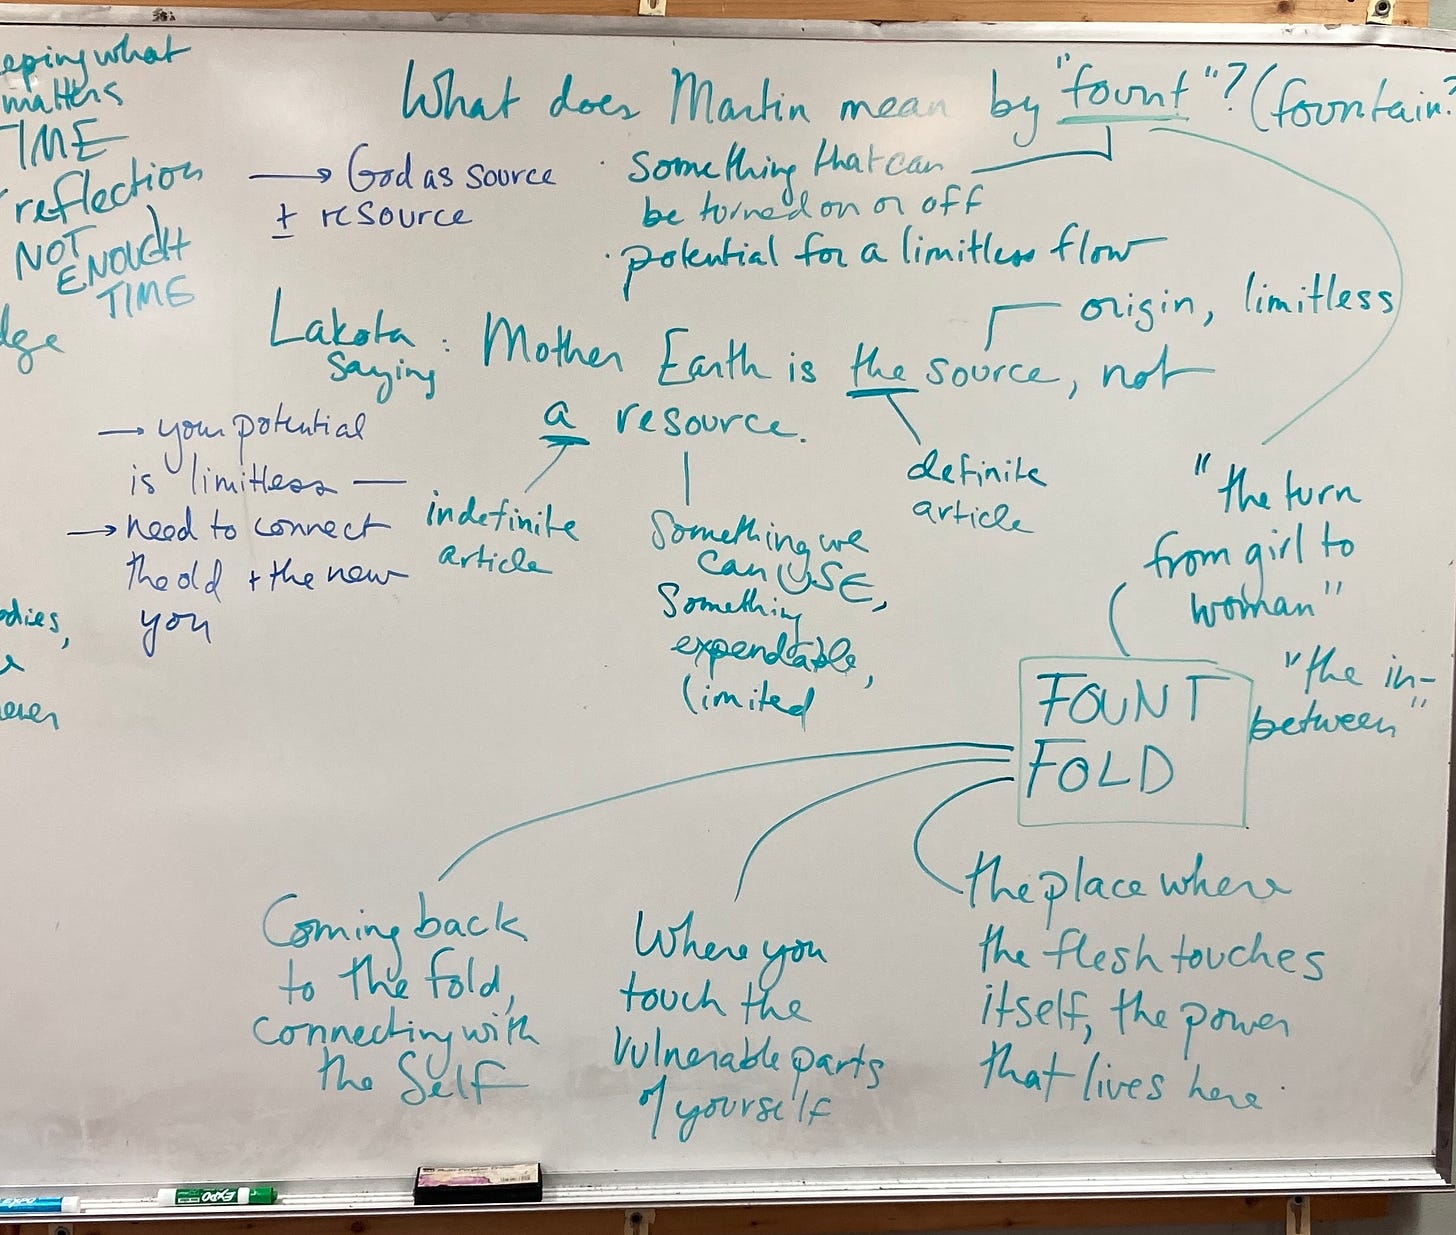 eping what
matters
TIME
reflection
NOT
ENOUGH
TIME
dge
odies,
ever
What does Martin mean by "fount"? (fountain?
→ God as source
+ resource
· Something that can
be turned on or off
· potential for a limitless flow
origin, limitless
Lakota
Saying : Mother Earth is the source, not
a resource.
indefinite
article
definite
article
Something we
can USE,
Something
expendable,
limited
→ your potential
is limitless —
→ need to connect
the old + the new
you
"the turn
from girl to
woman"
"the in-
between"
FOUNT
FOLD
Coming back
to the fold,
connecting with
the Self
Where you
touch the
vulnerable parts
of yourself
the place where
the flesh touches
itself, the power
that lives here.
EXPO